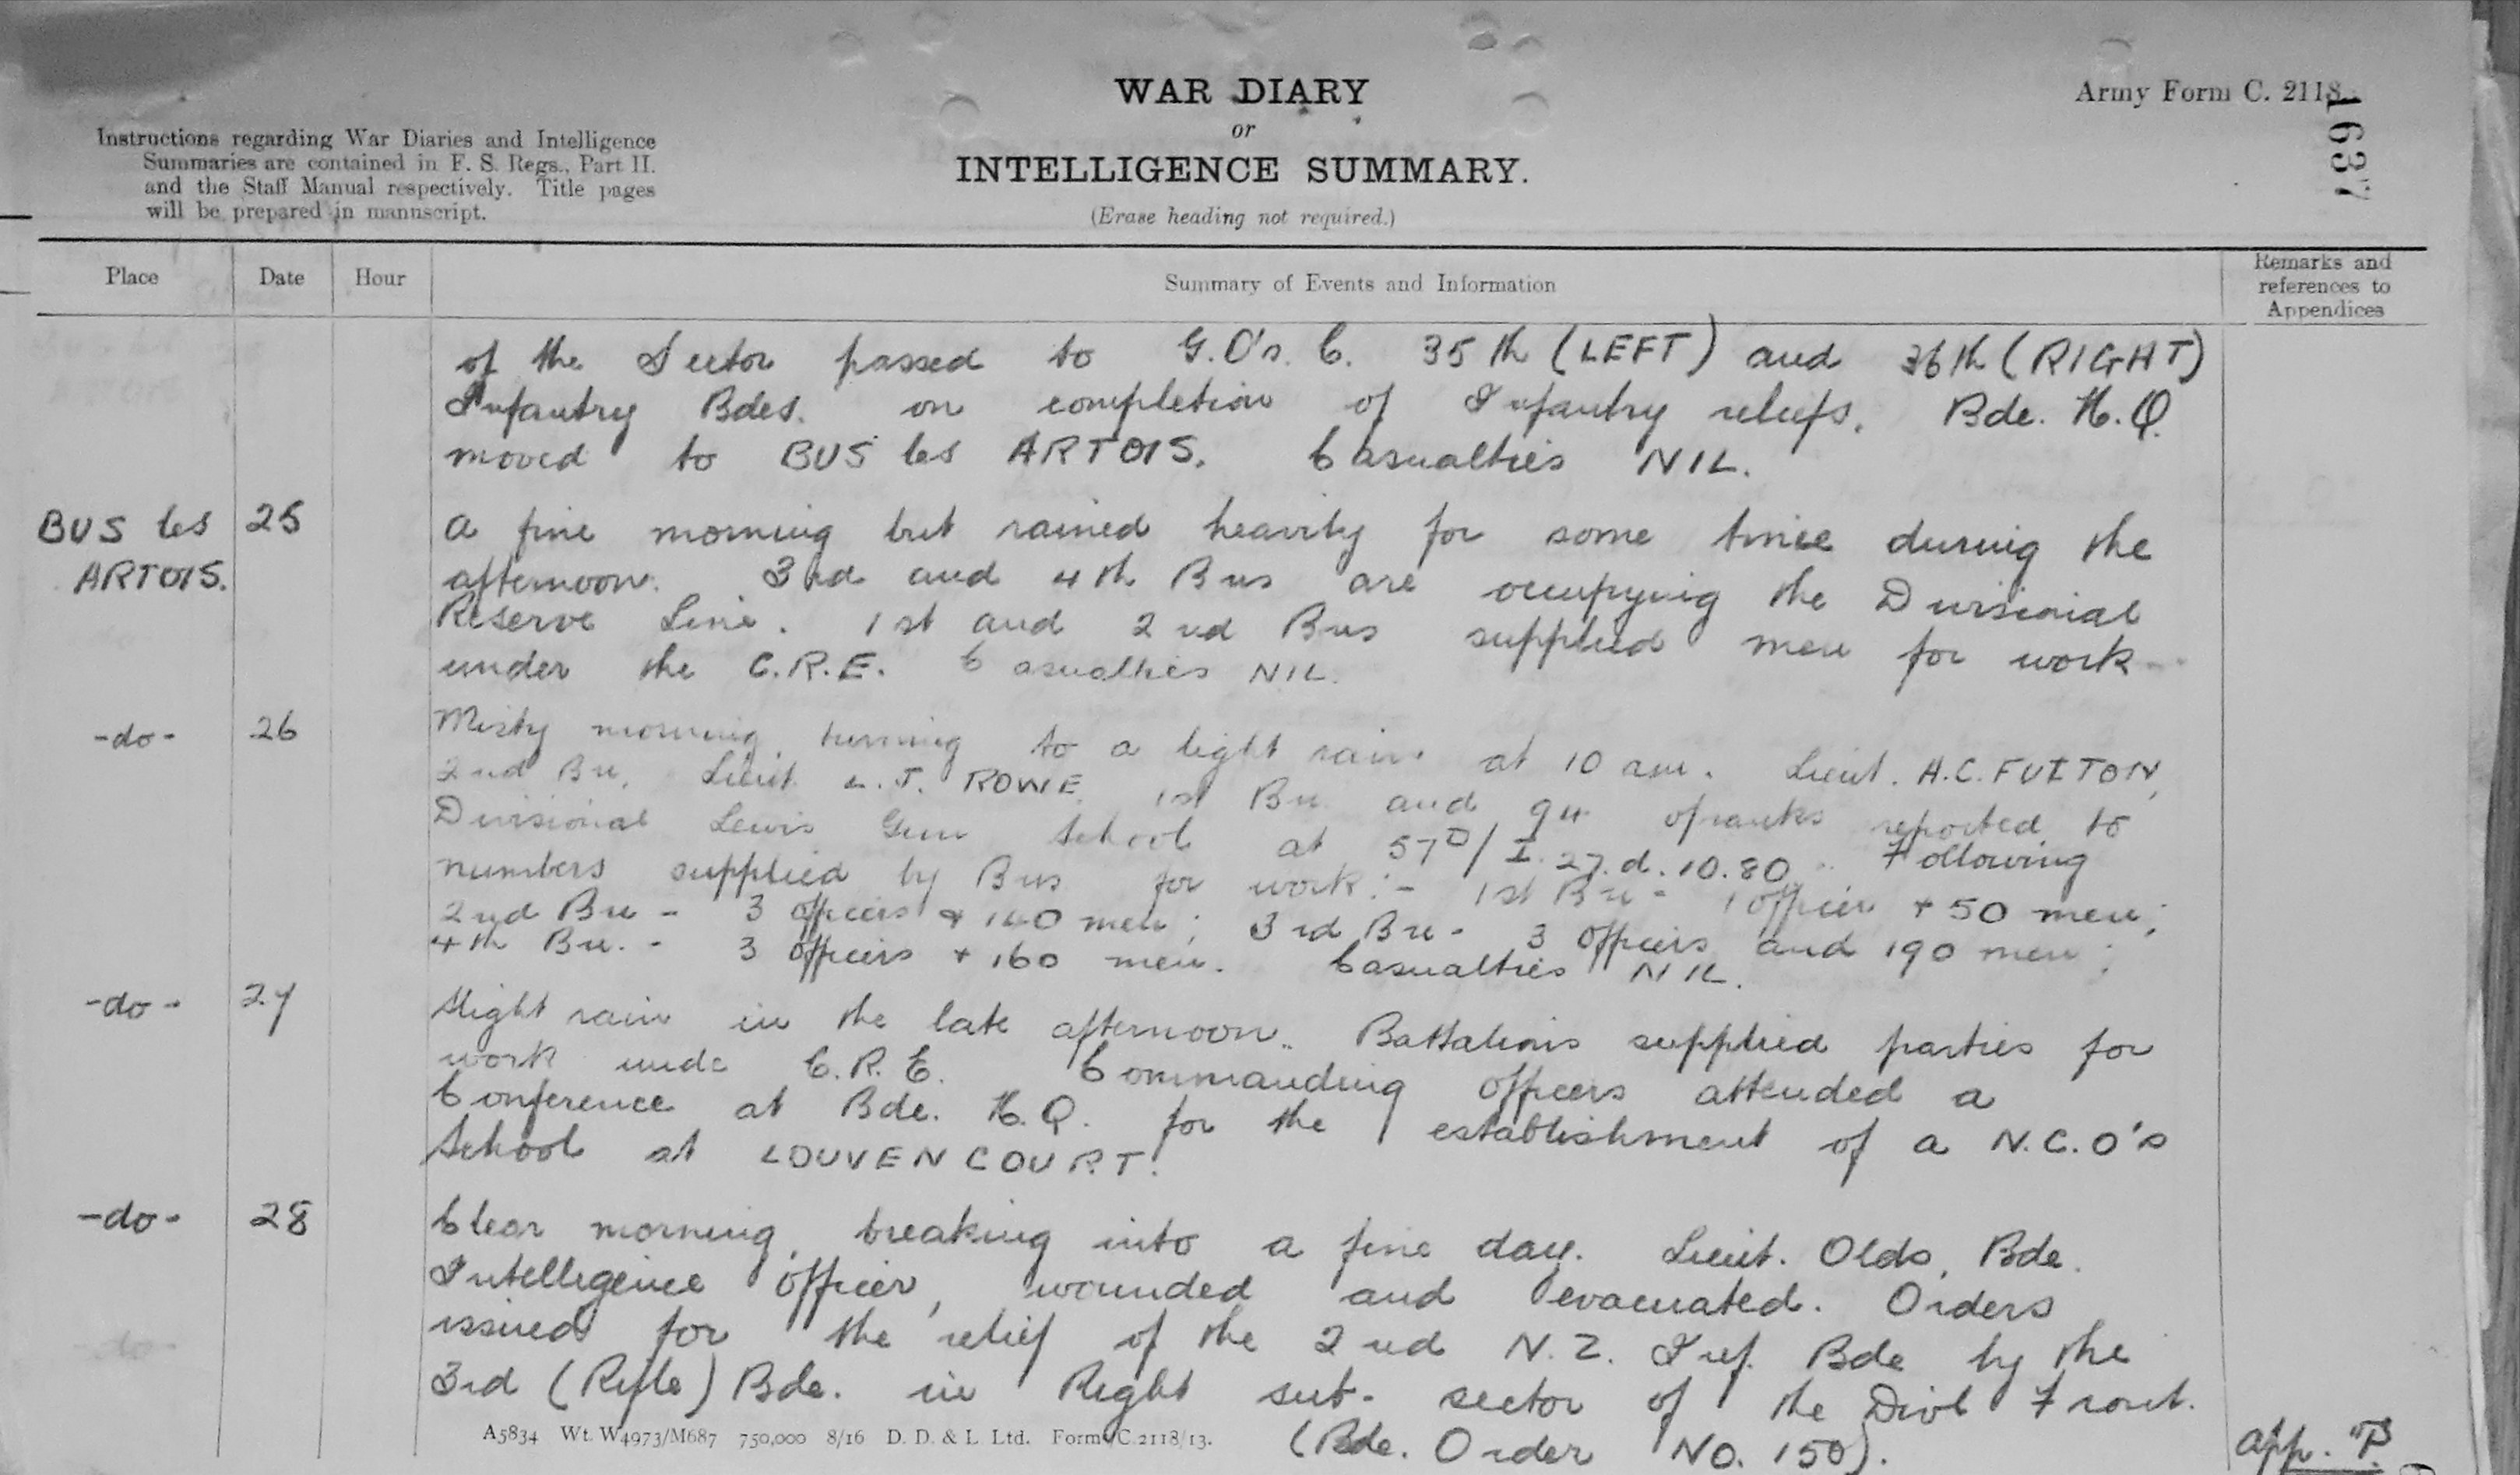 WAR DIARY
or
INTELLIGENCE SUMMARY.
(Erase heading not required.)
Army Form C. 2118.
1637
Instructions regarding War Diaries and Intelligence
Summaries are contained in F. S. Regs., Part II.
and the Staff Manual respectively. Title pages
will be prepared in manuscript.
Place Date Hour Summary of Events and Information Remarks and references to Appendices
of the Sector passed to G.O's. C. 35th (LEFT) and 36th (RIGHT)
Infantry Bdes. on completion of Infantry reliefs. Bde. H.Q.
moved to BUS les ARTOIS. Casualties NIL.
BUS les ARTOIS. 25 A fine morning but rained heavily for some time during the
afternoon. 3rd and 4th Bns are occupying the Divisional
Reserve Line. 1st and 2nd Bns supplied men for work
under the C.R.E. Casualties NIL.
-do- 26 Misty morning turning to a light rain at 10 am. Lieut. H.C. FUITON,
2nd Bn, Lieut. L.J. ROWE 1st Bn and 94 ofranks reported to
Divisional Lewis Gun School at 57D/I.27.d.10.80. Following
numbers supplied by Bns for work:- 1st Bn - 1 officer + 50 men;
2nd Bn - 3 officers + 140 men; 3rd Bn - 3 officers and 190 men;
4th Bn. - 3 officers + 160 men. Casualties NIL.
-do- 27 Slight rain in the late afternoon. Battalions supplied parties for
work unde C.R.E. Commanding officers attended a
Conference at Bde. H.Q. for the establishment of a N.C.O's
School at LOUVENCOURT.
-do- 28 Clear morning, breaking into a fine day. Lieut. Olds, Bde.
Intelligence officer, wounded and evacuated. Orders
issued for the relief of the 2nd N.Z. Inf. Bde by the
3rd (Rifle) Bde. in Right sub-sector of the Divl Front.
(Bde. Order No. 150). app. "P
A5834 Wt. W4973/M687 750,000 8/16 D. D. & L. Ltd. Form C.2118/13.